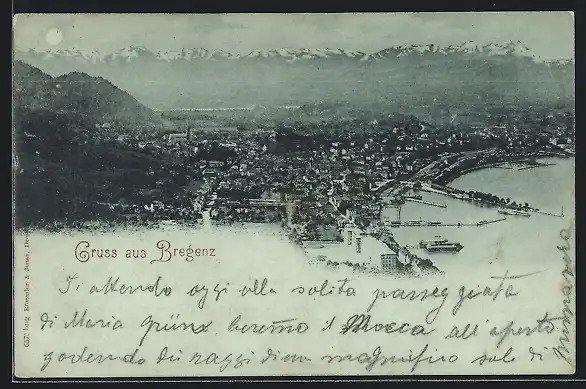 Gruss aus Bregenz
Ti attendo oggi alla solita passeggiata
di Maria Grünz beremo il Mocca all'aperto
godendo di raggi di un magnifico sole di
primavera
Römmler & Jonas,